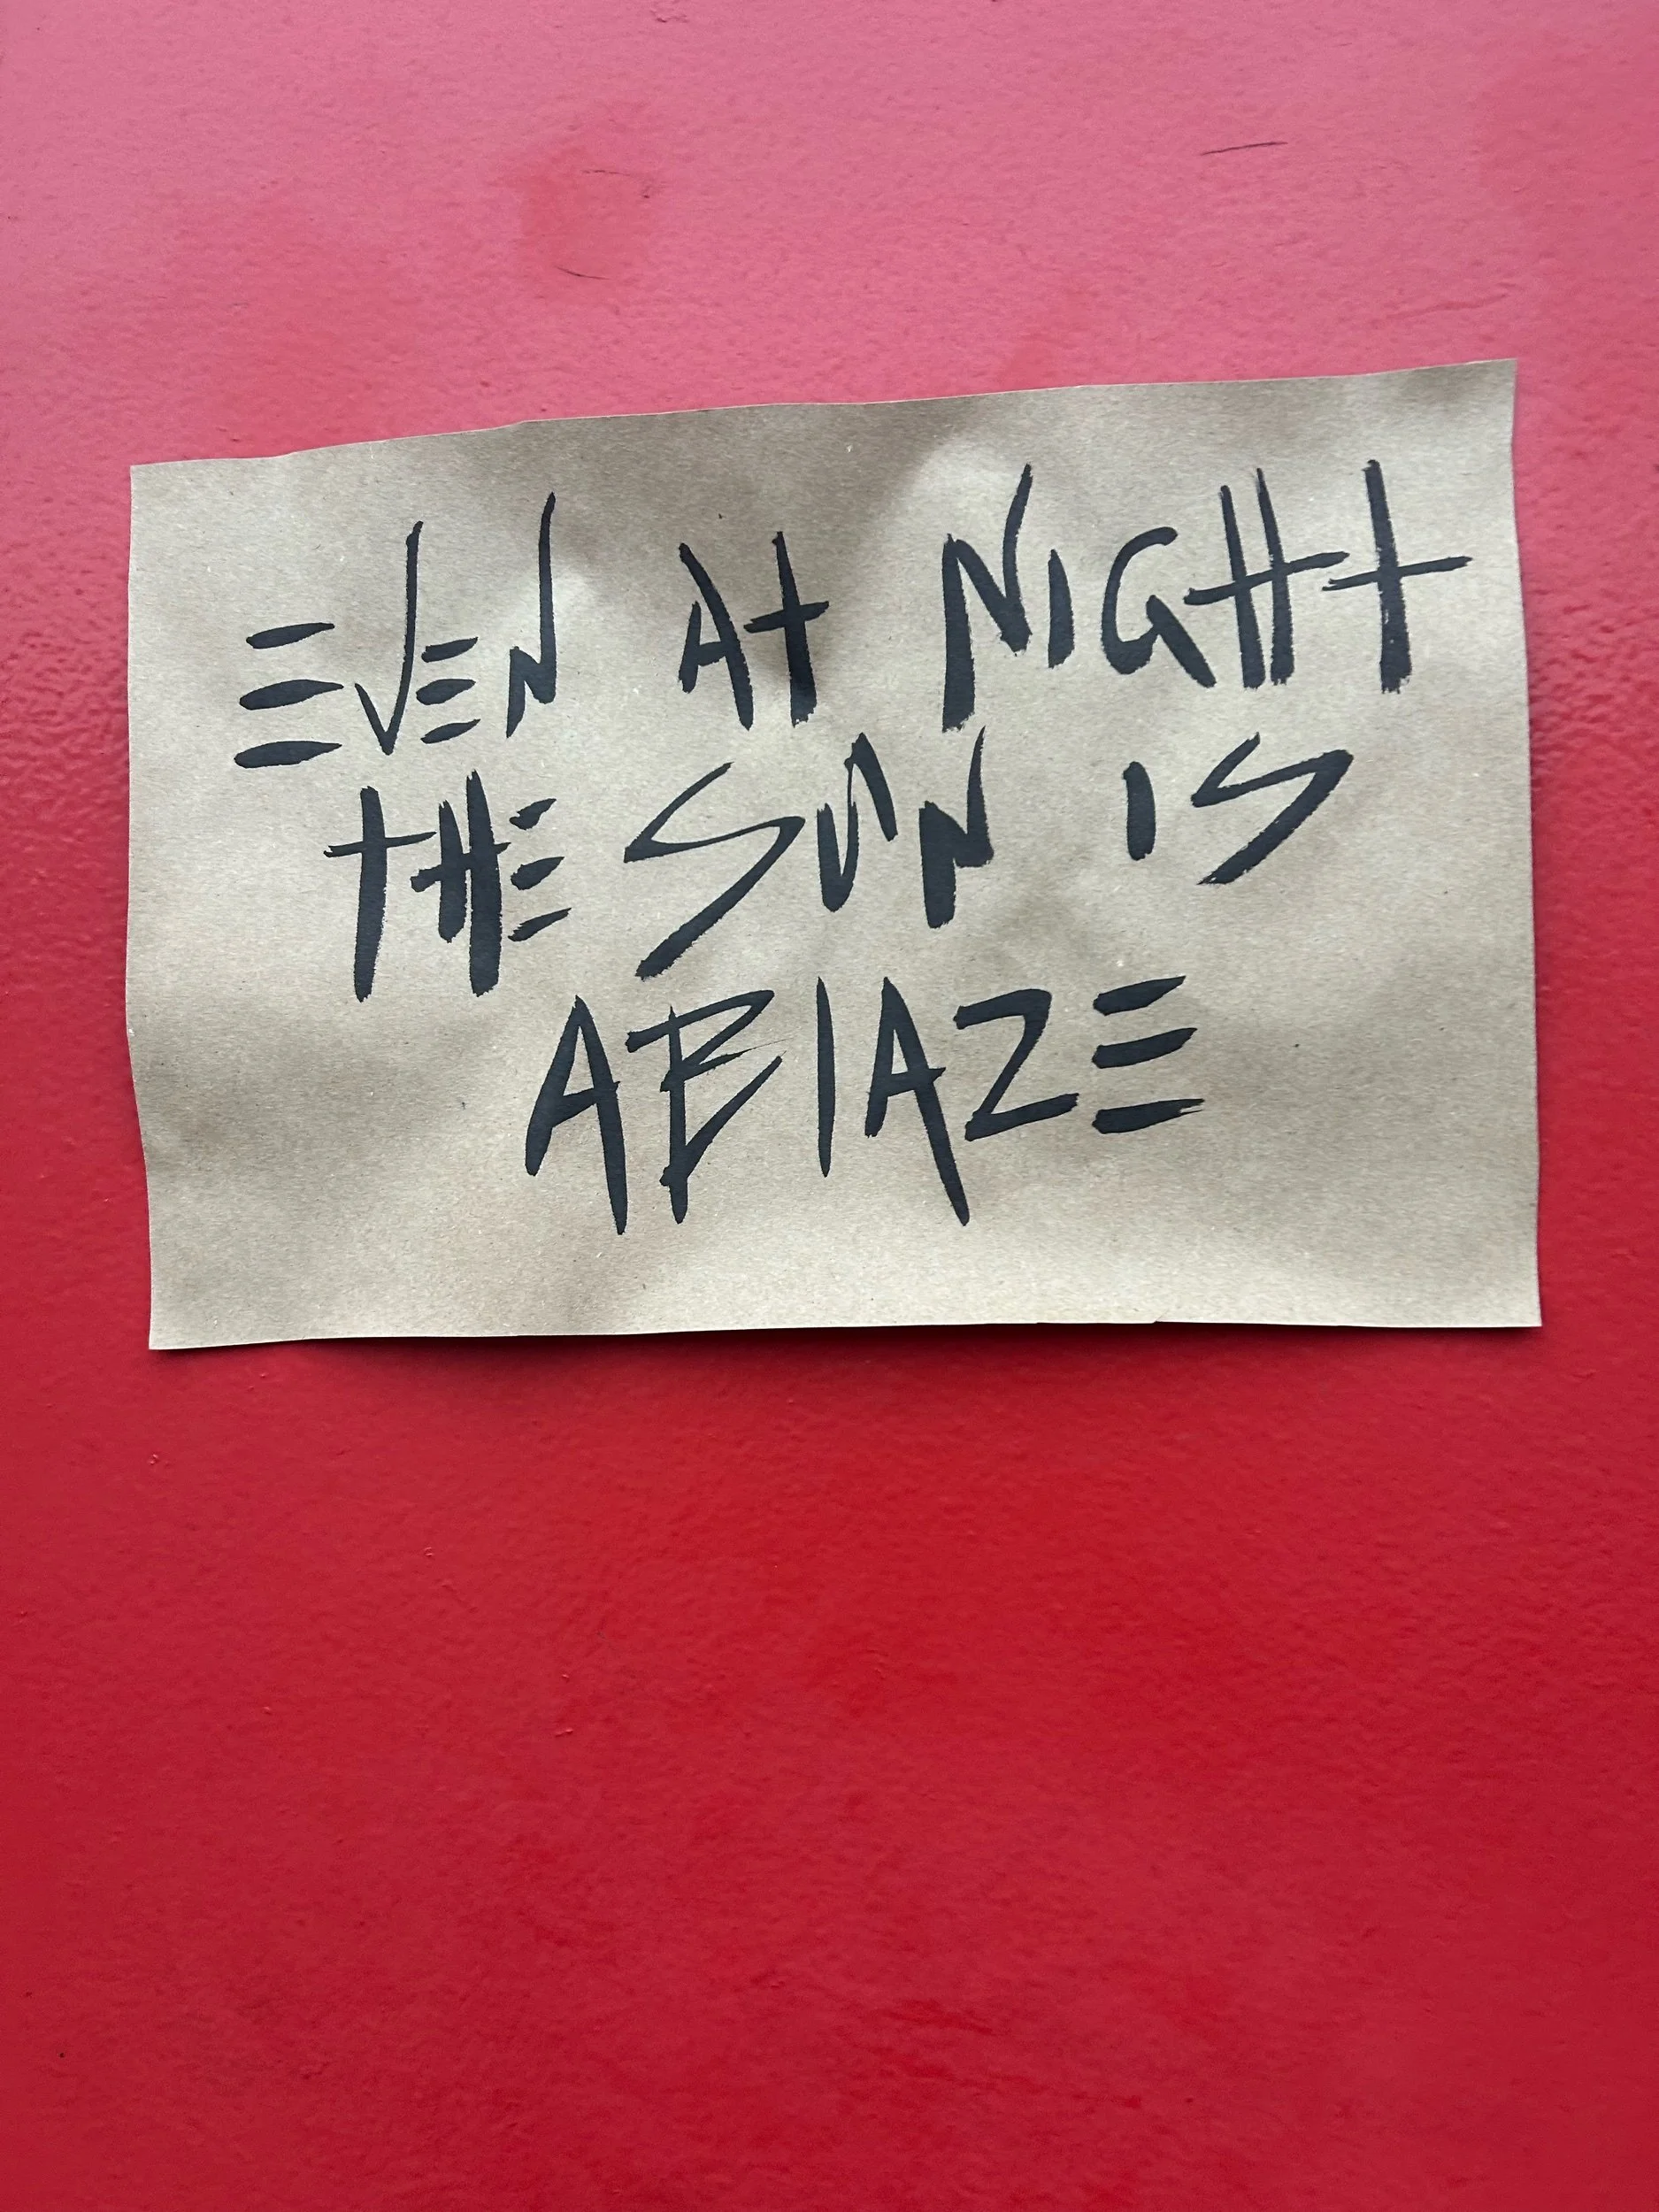 EVEN AT NIGHT
THE SUN IS
ABLAZE